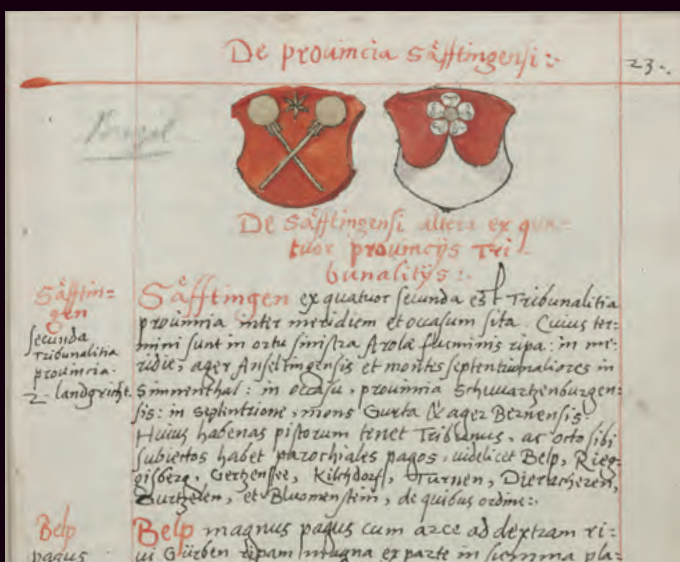 De prouincia Såfftingensi :·
23·.
De Såfftingensi altera ex qua-
tuor prouincijs Tri-
bunalitijs :·
Såfftin=
gen
secunda
Tribunalitia
prouincia.
2· landgricht.
Såfftingen ex quatuor secunda est Tribunalitia
prouinnia inter meridiem et occasum sita. Cuius ter=
mini sunt in ortu sinistra Arolæ fluminis ripa: in me=
ridie, ager Anseltingensis et montes septentrionaliores in
Simmenthal: in occasu, prouinnia Schwartzenburgen=
sis: in Septentrione, mons Gurta & ager Bernensis.
Huius habenas pistorum tenet Tribunus, ac octo sibi
subiectos habet parochiales pagos, uidelicet Belp, Rieg=
gisberg, Gertzensee, Kilchdorf, Turnen, Dieracheren,
Gurtzelen, et Bluomenstein, de quibus ordine:·
Belp
pagus
Belp magnus pagus cum arce ad dextram ri=
ui Gürben ripam magna ex parte in summa pla=